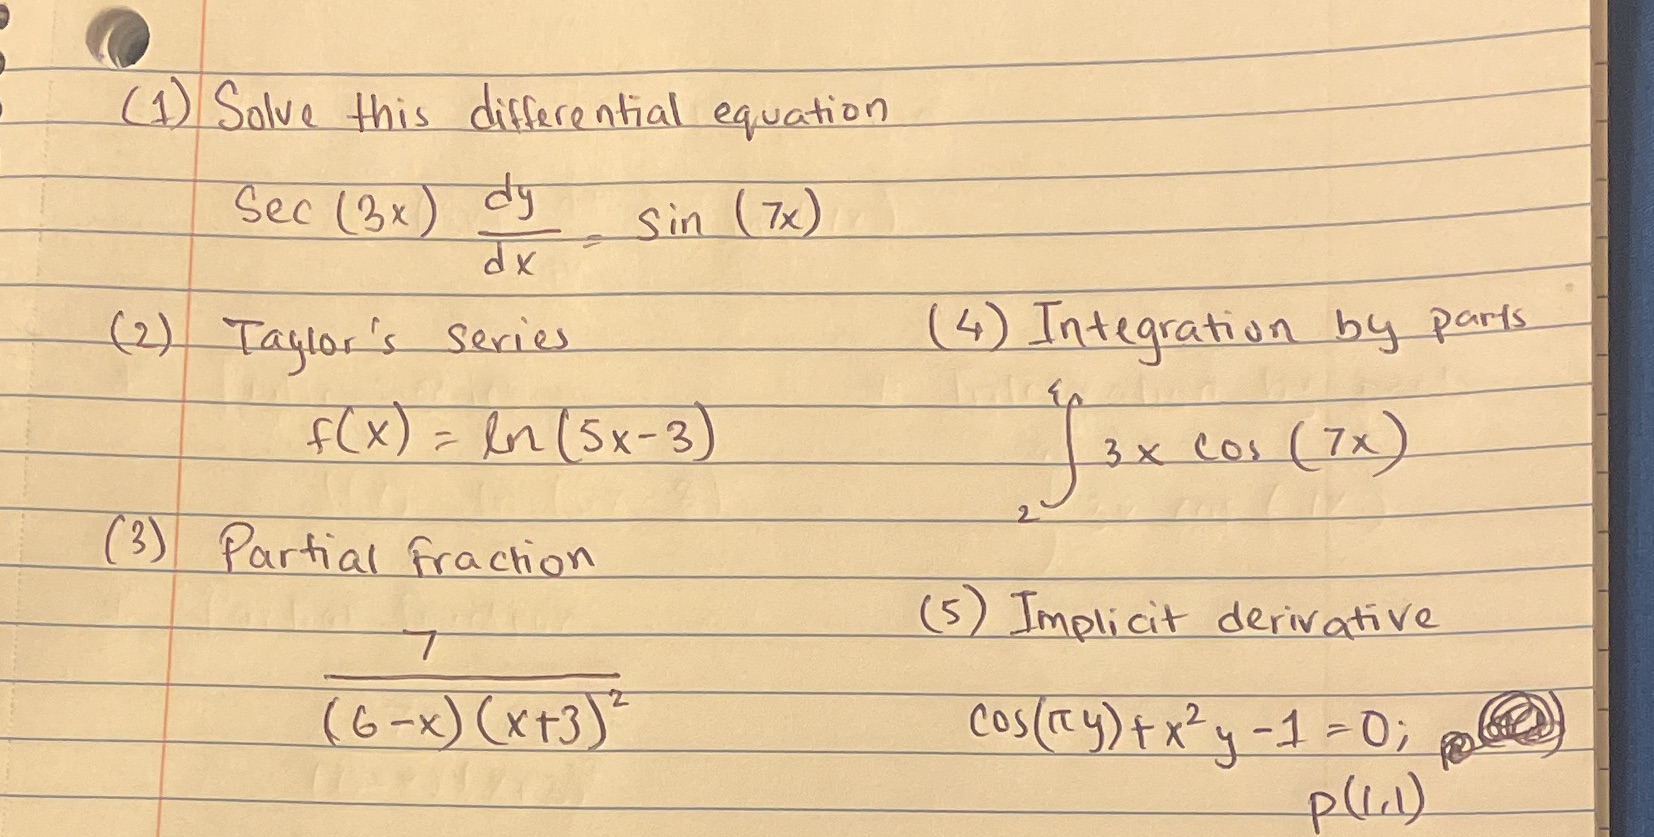 (1) Solve this differential equation
sec (3x) dy/dx = sin (7x)
(2) Taylor's series
f(x) = ln(5x-3)
(3) Partial fraction
7/(6-x)(x+3)²
(4) Integration by parts
∫₂⁴ 3x cos (7x)
(5) Implicit derivative
cos(πy)+x²y-1=0;
p(1,1)